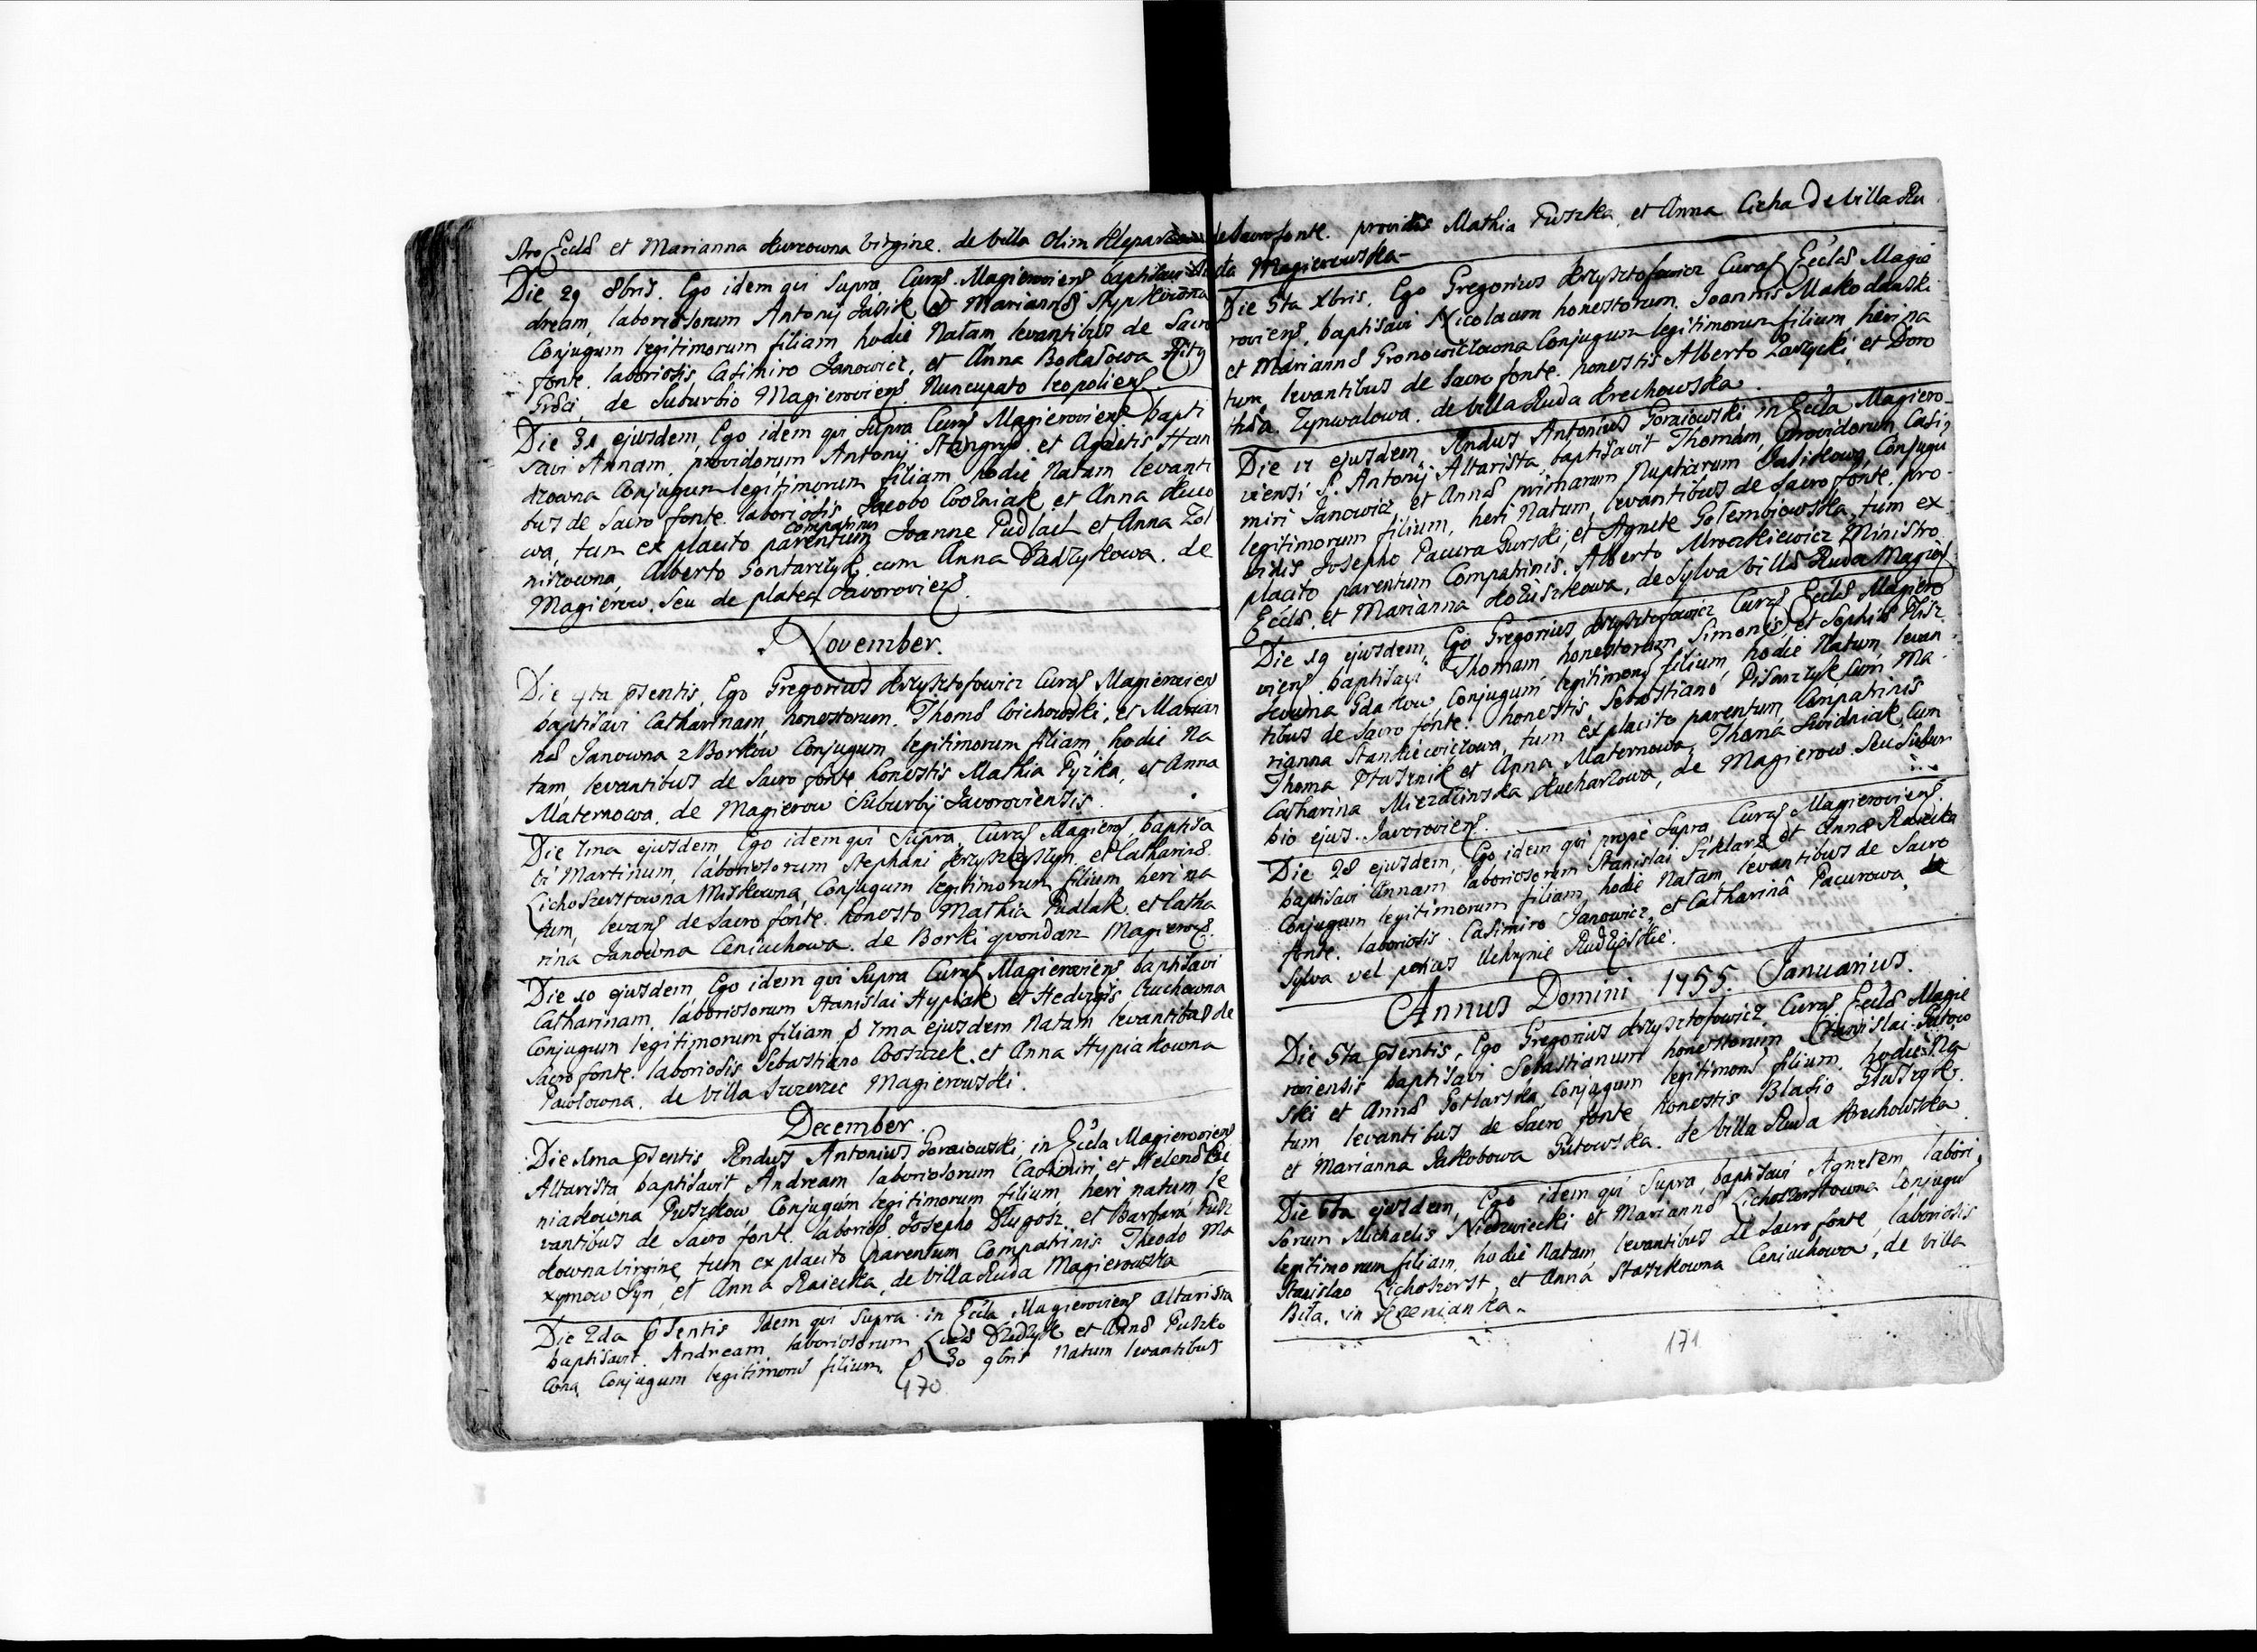 stro Eccłæ et Marianna Kurcowna Virgine. de Villa Olim Klepar
Die 29 8bris. Ego idem qui Supra Curaς Magierovienς baptisavi An
dream, laboriosorum Antonij Jasik et Mariannæ Stypkowna
Conjugum legitimorum filiam hodie Natam levantibus de Sacro
fonte. laboriosis, Casimiro Janowicz, et Anna Bokałowa Ritg
Græci, de Suburbio Magierovienς Nuncupato leopolienς.
Die 31 ejusdem, Ego idem qui Supra Curaς Magierovienς bapti
savi Annam, providorum Antonij et Agnetis Han
drowna Conjugum legitimorum filiam hodie Natam levanti
bus de Sacro fonte. laboriosis Jacobo Woźniak et Anna
wa, tum ex placito parentum Compatrinis Joanne Pudlak et Anna Zol
nirowna, Alberto Gontarczyk cum Anna Dadzykowa. de
Magierow. Seu de platea Javorovienς.
November.
Die 4ta pſentis, Ego Gregorius Krzysztofowicz Curaς Magierovienς
baptisavi Catharinam, honestorum. Thomæ Woichowski, et Marian
næ Janowna z Borkow Conjugum legitimorum filiam, hodie Na
tam, levantibus de Sacro fonte honestis Mathia Pyzka, et Anna
Maternowa, de Magierow Suburbij Javoroviensis.
Die 7ma ejusdem Ego idem qui Supra, Curaς Magierς, baptisa
vi Martinum, laboriosorum Stephani Krzyszczyszyn. et Catharinæ.
Lichoszerstowna Miskowna, Conjugum legitimorum filium heri na
tum, levanς de Sacro fonte. honesto Mathia Pudlak. et Catha
rina Janowna Ceniuchowa. de Borki quondam Magierovς.
Die 10 ejusdem Ego idem qui Supra Curaς Magierovienς baptisavi
Catharinam, laboriosorum Stanislai Hypiak et Hedvigis Czuchowna
Conjugum legitimorum filiam p 7ma ejusdem Natam levantibus de
Sacro fonte. laboriosis Sebastiano Woszczek. et Anna Hypiakowna
Pawłowna. de Villa Szczerzec Magierowski.
December.
Die 1ma pſentis Rndus Antonius Goraiowski, in Eccla Magierovienς
Altarista baptisavit Andream laboriosorum Casimiri, et Helenæ
niakowna Puszkow, Conjugum legitimorum filium, heri natum le
vantibus de Sacro fonte. laboriosς. Josepho Długosz. et Barbara Pusz
kowna Virgine, tum ex placito parentum Compatrinis Theodo Ma
xymow Syn, et Anna Raiecka, de Villa Ruda Magierowska
Die 2da pſentis Idem qui Supra in Eccla Magierovienς Altarista
baptisavit. Andream laboriosorum Lucæ Dzidzyk et Annæ Puszko
wna, Conjugum legitimorς filium. p 30 9bris Natum levantibus
170
de Sacro fonte. providis Mathia Puszka, et Anna Cicha de Villa Ru
da Magierowska.
Die 5ta Xbris, Ego Gregorius Krzysztofowicz Curaς Eccłæ Magie
rovienς, baptisavi Nicolaum honestorum, Joannis Makodanski
et Mariannæ Gronowiczowna Conjugum legitimorum filium, heri na
tum, levantibus de Sacro fonte. honestis Alberto Zaczycki, et Doro
thea. Zynwalowa. de Villa Ruda Krechowska.
Die 17 ejusdem, Rndus Antonius Goraiowski in Eccla Magiero
viensi S. Antonij Altarista, baptisavit Thomam, providorum Casi
miri Janowicz, et Annæ primarum Nuptiarum Jasikowa, Conjugu
legitimorum filium, heri Natum, levantibus de Sacro fonte. pro
vidis Josepho Pacura Gurski, et Agnete Gołembiowska, tum ex
placito parentum Compatrinis. Alberto Mroczkiewicz Ministro
Eccłæ. et Marianna Kołuszkowa, de Sylva Villæ Ruda Magierς
Die 19 ejusdem, Ego Gregorius Krzysztofowicz Curaς Eccłæ Magiero
vienς baptisavi Thomam honestorum, Simonis, et Sophiæ Ptasz
kowna Conjugum legitimorς filium, hodie Natum, levan
tibus de Sacro fonte. honestis Sebastiano Pisarczyk cum Ma
rianna Stankiewiczowa, tum ex placito parentum, Compatrinis
Thoma Ptasznik et Anna Maternowa, Thoma Swidniak, Cum
Catharina Mierzdlinska Kucharzowa, de Magierow. Seu Subur
bio ejus. Javorovienς.
Die 28 ejusdem, Ego idem qui prope Supra Curaς Magierovienς.
baptisavi Annam laboriosorum Stanislai Szklarz et Annæ Raiecka
Conjugum legitimorum filiam, hodie Natam, levantibus de Sacro
fonte. laboriosis Casimiro Janowicz, et Catharina Pacurowa de
Sylva vel potius Uchrynie Rudzieskie.
Annus Domini 1755. Januarius.
Die 5ta pſentis, Ego Gregorius Krzysztofowicz, Curaς Eccłæ Magie
roviensis baptisavi Sebastianum honestorum, Stanislai Gutow
ski et Annæ Gotlarska Conjugum legitimorς filium. hodie Na
tum, levantibus de Sacro fonte honestis Blasio Ptaszyk.
et Marianna Jakobowa Gutowska. de Villa Ruda Krechowska.
Die 6ta ejusdem, Ego idem qui Supra, baptisavi Agnetem labori
sorum Michaelis Niedzwiecki et Mariannæ Lichoszerstowna Conjugu
legitimorum filiam, hodie Natam, levantibus de Sacro fonte, laboriosis
Stanislao Lichoszerst, et Anna Staszkowna Ceniuchowa, de Villa
Biła, in
171